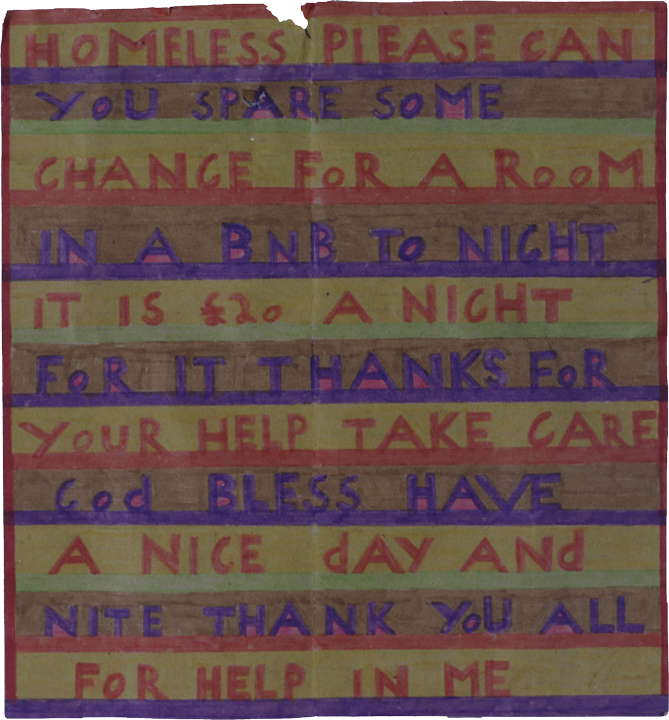 HOMELESS PLEASE CAN
YOU SPARE SOME
CHANGE FOR A ROOM
IN A BNB TO NIGHT
IT IS £20 A NIGHT
FOR IT THANKS FOR
YOUR HELP TAKE CARE
God BLESS HAVE
A NICE dAY ANd
NITE THANK YOU ALL
FOR HELP IN ME